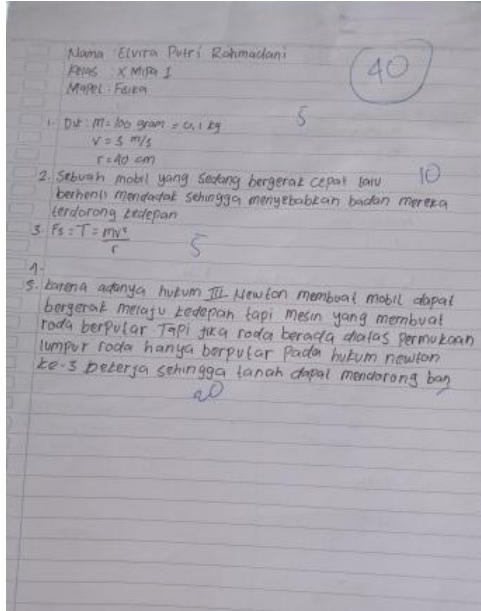 Nama : Elvira Putri Rahmadani
Kelas : X Mipa I
Mapel : Fisika
40
5
1. Dik : m = 100 gram = 0,1 kg
v = 5 m/s
r = 40 cm
2. Sebuah mobil yang sedang bergerak cepat lalu 10
berhenti mendadak sehingga menyebabkan badan mereka
terdorong kedepan
3. Fs = T = mv²/r
5
4.
5. karena adanya hukum III Newton membuat mobil dapat
bergerak melaju kedepan tapi mesin yang membuat
roda berputar Tapi jika roda berada diatas permukaan
lumpur roda hanya berputar Pada hukum newton
ke-3 bekerja sehingga tanah dapat mendorong ban
20